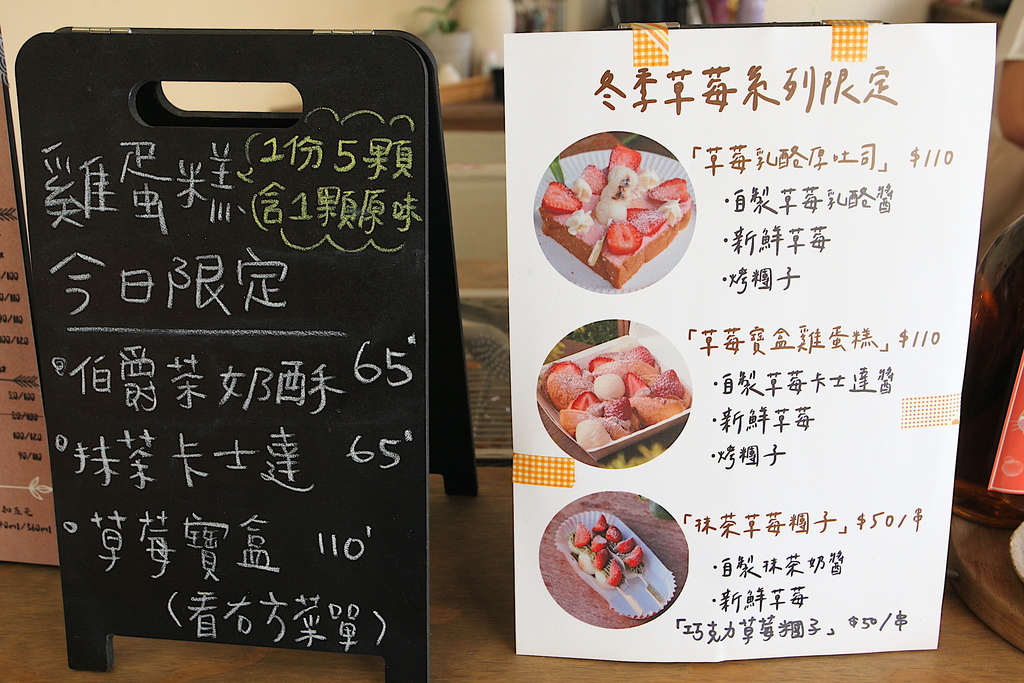 雞蛋糕
1份5顆
含1顆原味
今日限定
伯爵茶奶酥 65
抹茶卡士達 65
草莓寶盒 110
(看右方菜單)
冬季草莓系列限定
「草莓乳酪厚吐司」 $110
・自製草莓乳酪醬
・新鮮草莓
・烤糰子
「草莓寶盒雞蛋糕」 $110
・自製草莓卡士達醬
・新鮮草莓
・烤糰子
「抹茶草莓糰子」 $50/串
・自製抹茶奶醬
・新鮮草莓
「巧克力草莓糰子」 $50/串